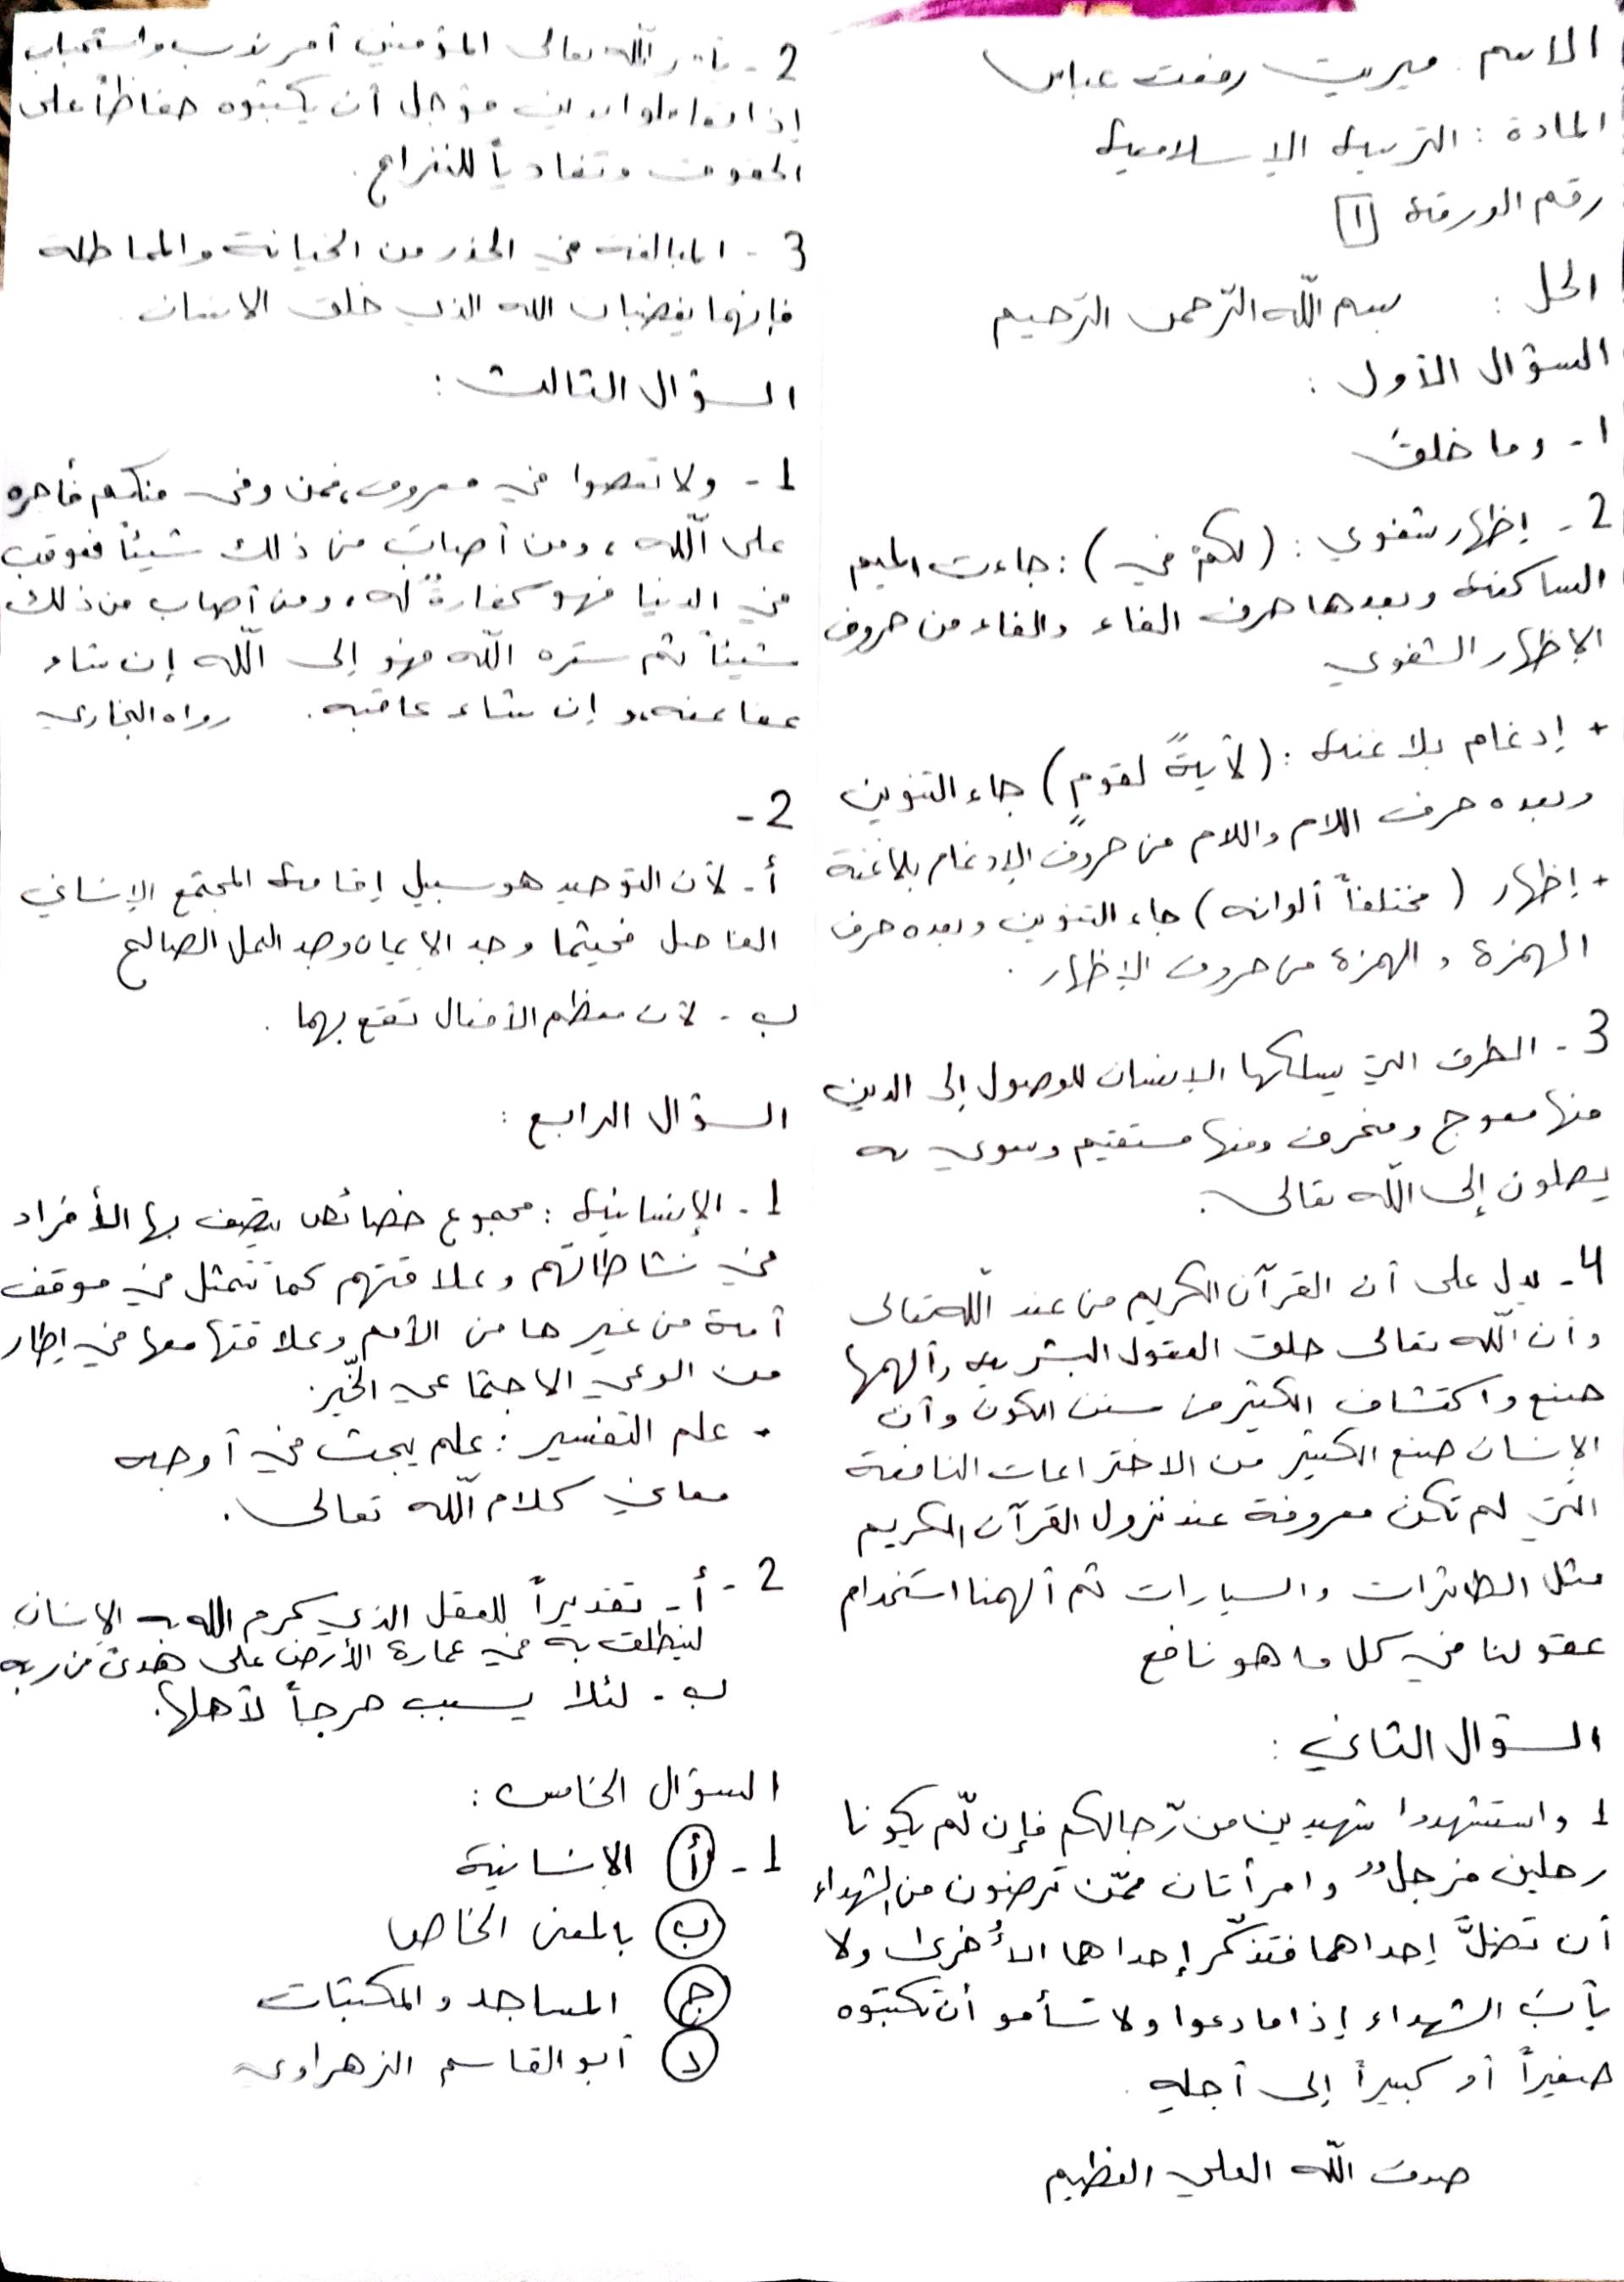 الاسم: ميريت رفعت عباس
المادة: التربية الإسلامية
رقم الورقة [1]
الحل: بسم اللّه الرّحمن الرّحيم
السؤال الأول:
1- وما خلق
2- إظهار شفوي: (لكمْ في): جاءت الميم
الساكنة وبعدها حرف الفاء والفاء من حروف
الإظهار الشفوي
+ إدغام بلا غنة: (لآيةً لقومٍ) جاء التنوين
وبعده حرف اللام واللام من حروف الإدغام بلا غنة
+ إظهار (مختلفاً ألوانه) جاء التنوين وبعده حرف
الهمزة و الهمزة من حروف الإظهار.
3- الطرق التي يسلكها الإنسان للوصول إلى الدين
منها معوج ومنحرف ومنها مستقيم وسوي به
يصلون إلى اللّه تعالى.
4- يدل على أن القرآن الكريم من عند اللّه تعالى
وأن اللّه تعالى خلق العقول البشرية وألهمها
صنع واكتشاف الكثير من سنن الكون وأن
الإنسان صنع الكثير من الاختراعات النافعة
التي لم تكن معروفة عند نزول القرآن الكريم
مثل الطائرات والسيارات ثم ألهمنا استخدام
عقولنا في كل ما هو نافع
السؤال الثاني:
1 واستشهدوا شهيدين من رّجالكم فإن لّم يكونا
رجلين فرجلٌ وامرأتان ممّن ترضون من الشهداء
أن تضلَّ إحداهما فتذكّر إحداهما الأُخرى ولا
يأبَ الشهداء إذا ما دعوا ولا تسأمو أن تكتبوه
صغيراً أو كبيراً إلى أجله.
صدق اللّه العلي العظيم
2- اللّه تعالى المؤمنين أمر ندب واستحباب
إذا مؤجل أن يكتبوه حفاظاً على
الحقوق وتفادياً للنزاع.
3- المبالغة في الحذر من الخيانة والمماطلة
فإنهما يغضبان الله الذي خلق الانسان.
السؤال الثالث:
1- ولا تعصوا في معروف، فمن وفى منكم فأجره
على اللّه، ومن أصابَ من ذلك شيئاً فعوقب
في الدنيا فهو كفارةٌ له، ومن أصاب من ذلك
شيئاً ثم ستره اللّه فهو إلى اللّه إن شاء
عفا عنه، و إن شاء عاقبه. رواه البخاري
2-
أ- لأن التوحيد هو سبيل إقامة المجتمع الإنساني
الفاضل فحيثما وجد الإيمان وجد العمل الصالح
ب- لأن معظم الأفعال تقع بهما.
السؤال الرابع:
1- الإنسانية: مجموع خصائص يتصف بها الأفراد
في نشاطاتهم وعلاقتهم كما تتمثل في موقف
أمة من غيرها من الأمم وعلاقتها معها في إطار
من الوعي الاجتماعي الخيّر.
• علم التفسير: علم يبحث في أوجه
معاني كلام اللّه تعالى.
2- أ- تقديراً للعقل الذي كرم الله به الإنسان
لينطلق به في عمارة الأرض على هدىً من ربه
ب- لئلا يسبب حرجاً لأهلها.
السؤال الخامس:
1- أ الإنسانية
ب بالمعنى الخاص
ج المساجد والمكتبات
د أبو القاسم الزهراوي